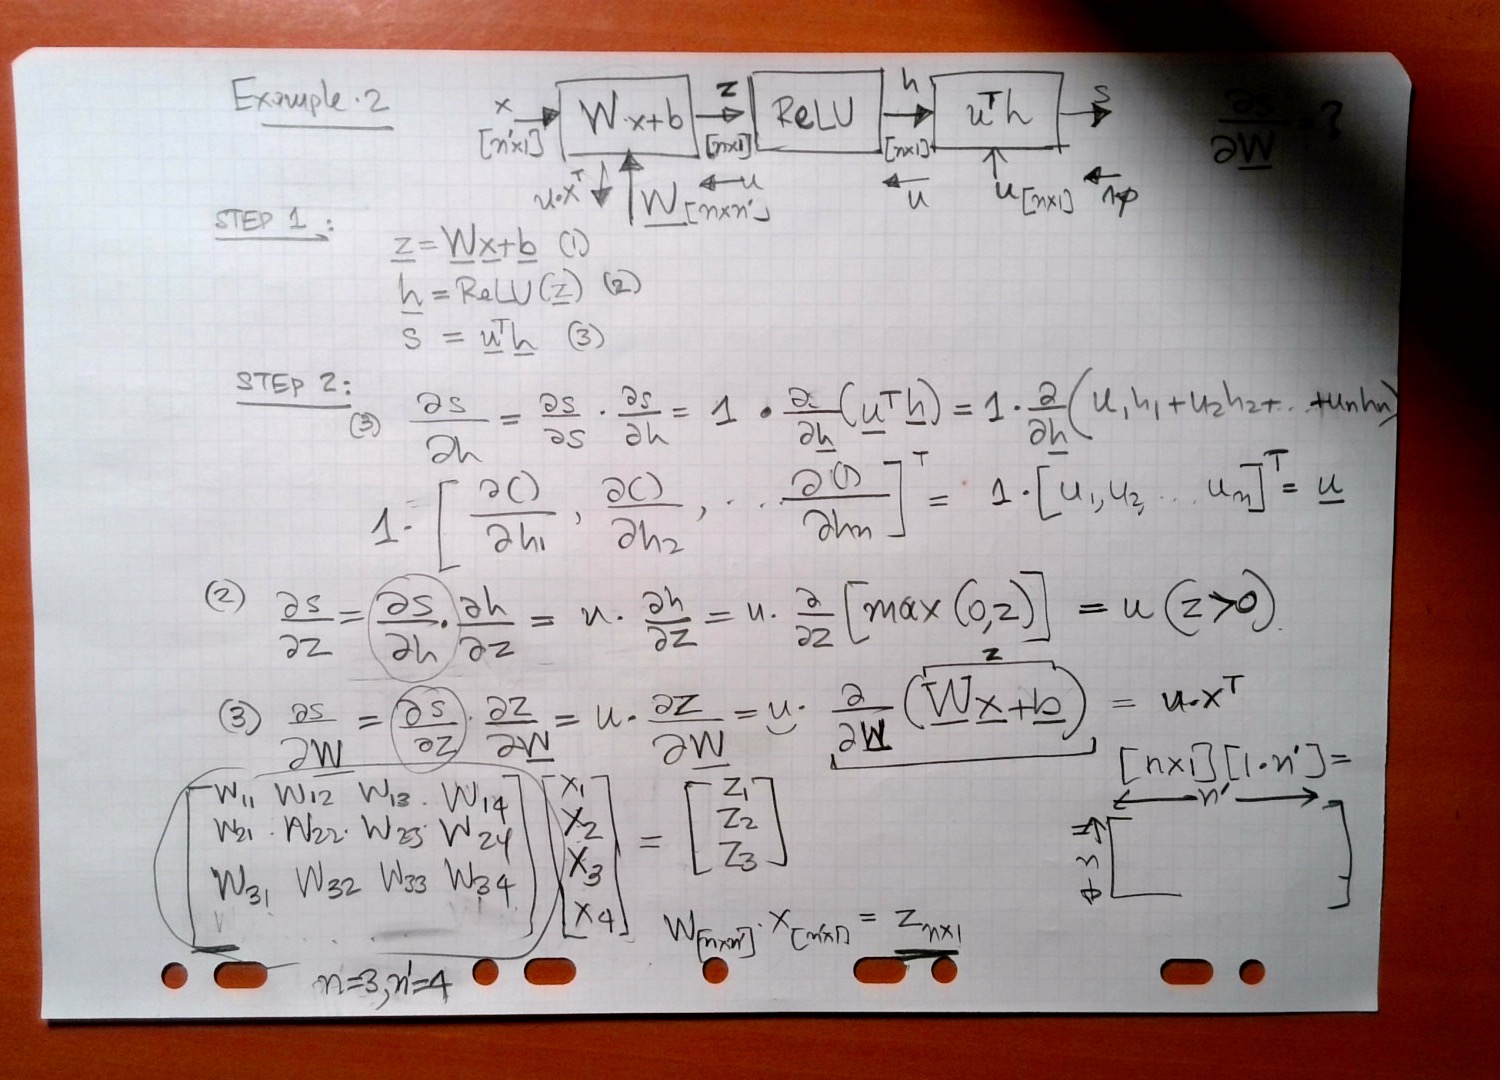 Example.2
x [n'x1] → W.x+b → z [nx1] → ReLU → h [nx1] → uᵀh → s ∂s/∂W = ?
u.xᵀ W [nxn'] ← u ← u u[nx1] ←
STEP 1:
z = Wx+b (1)
h = ReLU(z) (2)
s = uᵀh (3)
STEP 2:
(3) ∂s/∂h = ∂s/∂s · ∂s/∂h = 1 · ∂/∂h (uᵀh) = 1 · ∂/∂h (u₁h₁+u₂h₂+...+uₙhₙ)
1 · [∂()/∂h₁, ∂()/∂h₂, ... ∂()/∂hₙ]ᵀ = 1·[u₁,u₂, ... uₙ]ᵀ = u
(2) ∂s/∂z = ∂s/∂h · ∂h/∂z = u · ∂h/∂z = u · ∂/∂z [max(0,z)] = u (z>0)
z
(3) ∂s/∂W = ∂s/∂z · ∂z/∂W = u · ∂z/∂W = u · ∂/∂W (Wx+b) = u.xᵀ
[nx1][1·n']=
n'
W₁₁ W₁₂ W₁₃ W₁₄ x₁ z₁
W₂₁ W₂₂ W₂₃ W₂₄ x₂ = z₂
W₃₁ W₃₂ W₃₃ W₃₄ x₃ z₃ n
x₄
W[nxn'] · x[n'x1] = z nx1
n=3, n'=4